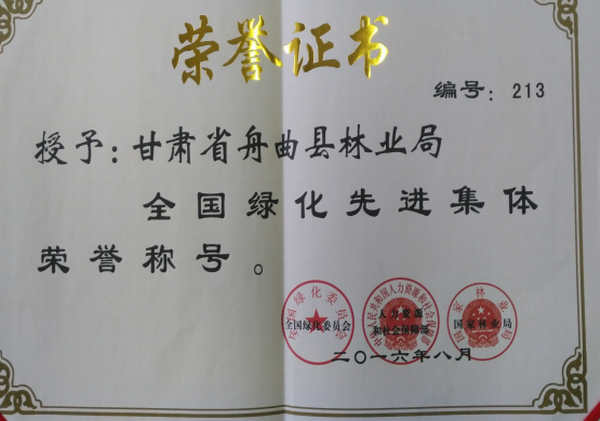 荣誉证书
编号：213
授予：甘肃省舟曲县林业局
全国绿化先进集体
荣誉称号。
全国绿化委员会
全国绿化委员会
中华人民共和国人力资源和社会保障部
人力资源
和社会保障部
国家林业局
国家林业局
二〇一六年八月